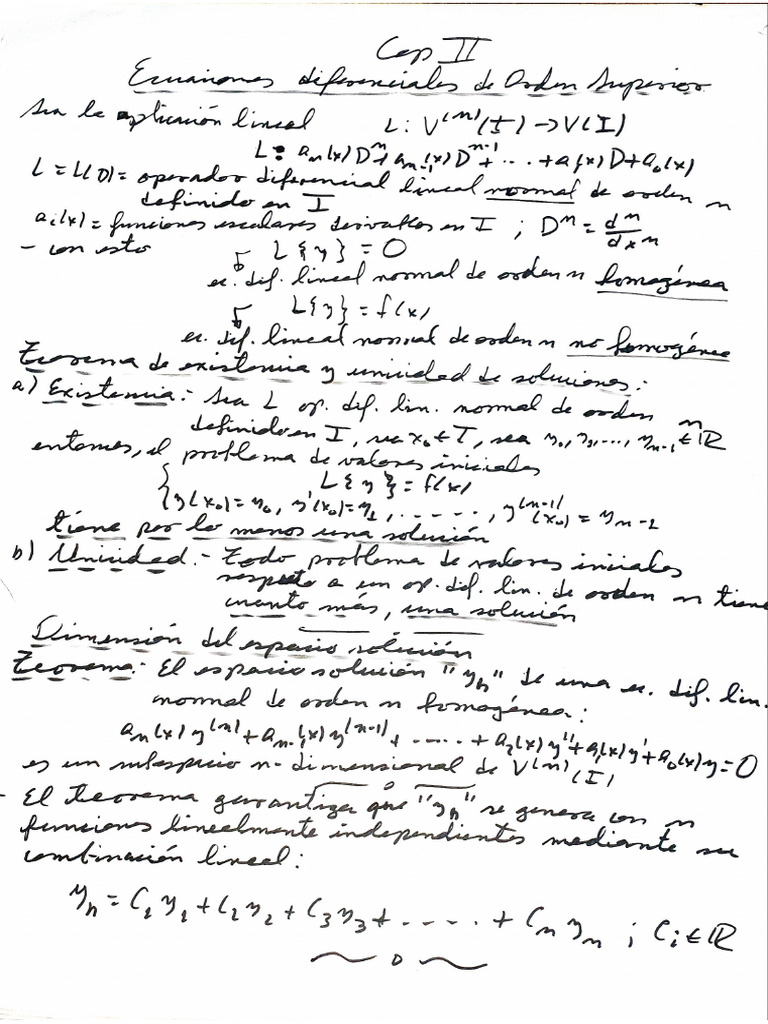 Cap II
Ecuaciones diferenciales de Orden Superior
Sea la aplicación lineal L: V^(n)(I) -> V(I)
L: aₙ(x)Dⁿ + aₙ₋₁(x)Dⁿ⁻¹ + ... + a₁(x)D + a₀(x)
L = L(D) = operador diferencial lineal normal de orden n
definido en I
aᵢ(x) = funciones escalares derivables en I ; Dⁿ = dⁿ/dxⁿ
- con esto L{y} = 0
ec. dif. lineal normal de orden n homogénea
L{y} = f(x)
ec. dif. lineal normal de orden n no homogénea
Teorema de existencia y unicidad de soluciones:
a) Existencia:- Sea L op. dif. lin. normal de orden n
definido en I, sea x₀ ∈ I, sea y₀, y₁, ..., yₙ₋₁ ∈ ℝ
entonces, el problema de valores iniciales
L{y} = f(x)
{ y(x₀) = y₀, y'(x₀) = y₁, ....., y^(n-1)(x₀) = yₙ₋₁
tiene por lo menos una solución
b) Unicidad.- Todo problema de valores iniciales
respecto a un op. dif. lin. de orden n tiene
cuanto más, una solución
Dimensión del espacio solución
Teorema: El espacio solución "yₕ" de una ec. dif. lin.
normal de orden n homogénea:
aₙ(x)y^(n) + aₙ₋₁(x)y^(n-1) + ..... + a₂(x)y'' + a₁(x)y' + a₀(x)y = 0
es un subespacio n-dimensional de V^(n)(I)
- El teorema garantiza que "yₕ" se genera con n
funciones linealmente independientes mediante su
combinación lineal:
yₕ = C₁y₁ + C₂y₂ + C₃y₃ + ..... + Cₙyₙ ; Cᵢ ∈ ℝ